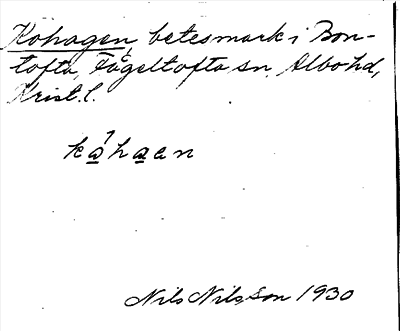 Kohagen, betesmark i Bon-
tofta, Fågeltofta sn, Albo hd,
Krist. l.
kåhaen
Nils Nilsson 1930